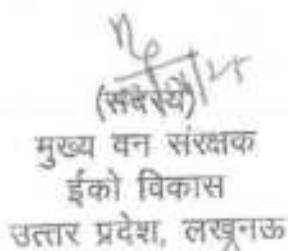 (सदस्य)
मुख्य वन संरक्षक
ईको विकास
उत्तर प्रदेश, लखनऊ